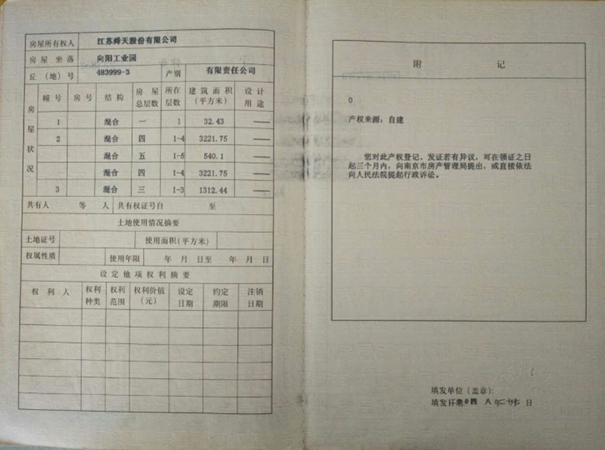 房屋所有权人 江苏舜天股份有限公司
房屋坐落 向阳工业园
丘(地)号 483999-3 产别 有限责任公司
房屋状况 幢号 房号 结构 房屋总层数 所在层数 建筑面积(平方米) 设计用途
1 混合 一 1 32.43 ——
2 混合 四 1-4 3221.75 ——
混合 五 1-5 540.1 ——
混合 四 1-4 3221.75 ——
3 混合 三 1-3 1312.44 ——
共有人 等 人 共有权证号自 至
土地使用情况摘要
土地证号 使用面积(平方米)
权属性质 使用年限 年 月 日至 年 月 日
设定他项权利摘要
权利人 权利种类 权利范围 权利价值(元) 设定日期 约定期限 注销日期
附 记
0
产权来源:自建
您对此产权登记、发证若有异议,可在领证之日
起三个月内,向南京市房产管理局提出,或直接依法
向人民法院提起行政诉讼。
填发单位(盖章):
填发日期 四 八 二 七 日